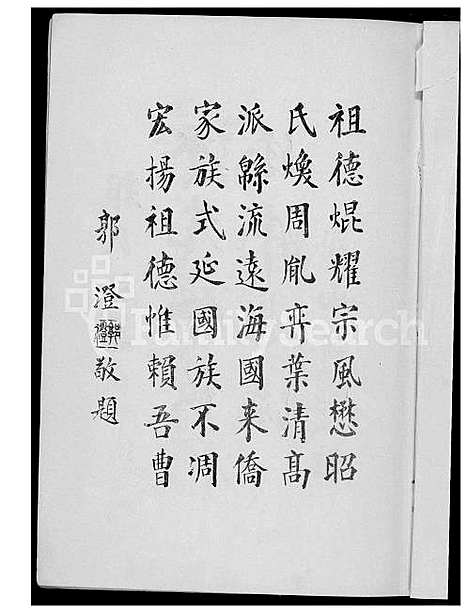 祖德焜耀宗風懋昭
氏煥周胤弈葉清高
派緜流遠海國来僑
家族式延國族不凋
宏揚祖德惟賴吾曹
郭澄敬題
FamilySearch